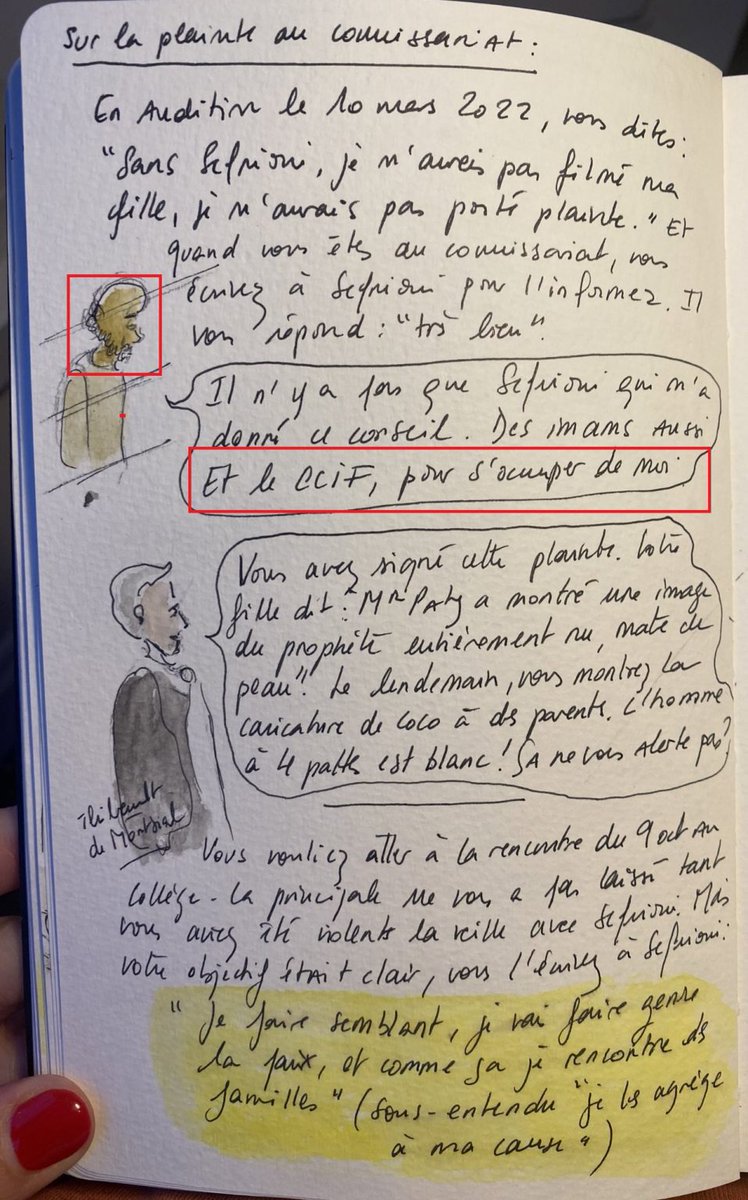 Sur la plainte au commissariat :
En audition le 10 mars 2022, vous dites :
"Sans Sefrioui, je n'aurais pas filmé ma
fille, je n'aurais pas porté plainte." Et
quand vous êtes au commissariat, vous
écrivez à Sefrioui pour l'informer. Il
vous répond : "très bien".
Il n'y a pas que Sefrioui qui m'a
donné ce conseil. Des imams aussi
Et le CCIF, pour s'occuper de moi
Vous avez signé cette plainte. Votre
fille dit : "Mr Paty a montré une image
du prophète entièrement nu, mate de
peau". Le lendemain, vous montrez la
caricature de Coco à ds parents. L'homme
à 4 pattes est blanc ! Ça ne vous alerte pas ?
Thibault
de Montbrial
Vous vouliez aller à la rencontre du 9 oct au
collège. La principale ne vous a pas laissé tant
vous avez été violents la veille avec Sefrioui. Mais
votre objectif était clair, vous l'écrivez à Sefrioui :
"Je faire semblant, je vai faire genre
la paix, et comme sa je rencontre ds
familles" (sous-entendu "je les agrège
à ma cause")